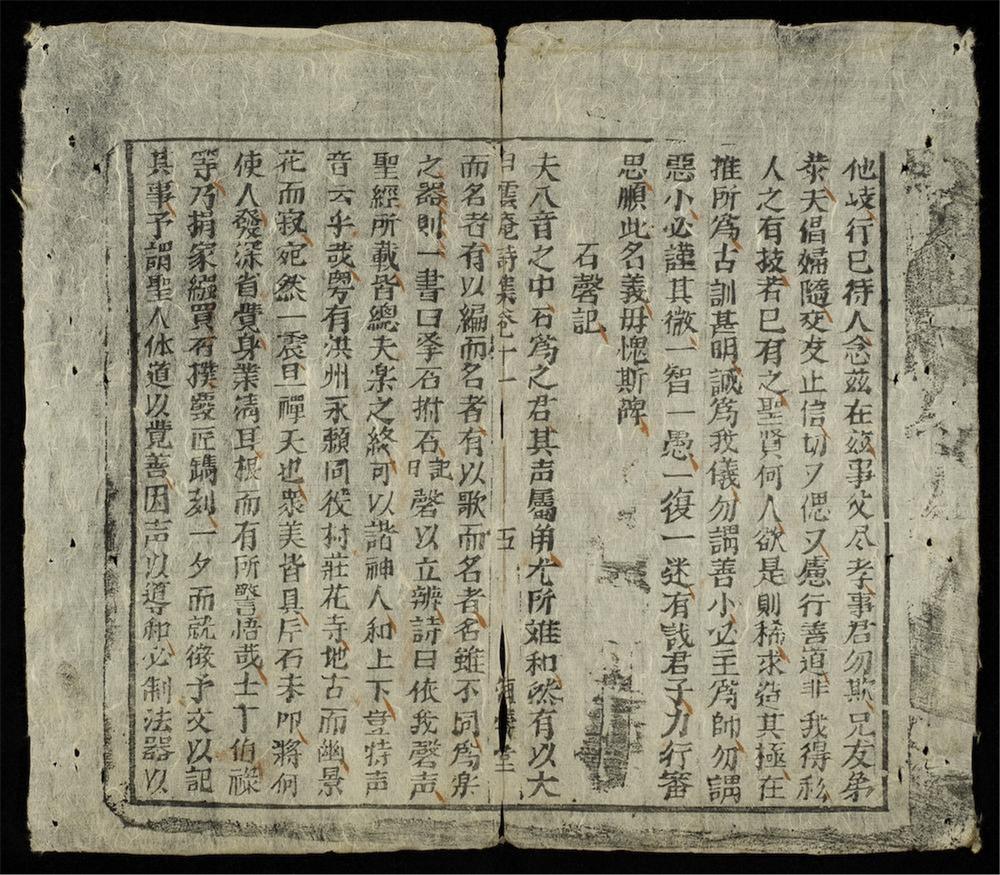 他歧行已待人念茲在茲事父尽孝事君勿欺兄友弟
恭夫倡婦隨交友止信切〻偲〻慮行善道非我得私
人之有技若已有之聖賢何人欲是則稀求造其極在
推所爲古訓甚明誠爲我儀勿謂善小必主爲師勿謂
惡小必謹其微一智一愚一復一迷有哉君子力行審
思顧此名義毋愧斯碑
石磬記
夫八音之中石爲之君其声屬角尤所难和然有以大
白雲庵詩集卷十一 五
而名者有以編而名者有以歌而名者名雖不同爲楽
之器則一書曰擊石拊石記曰磬以立辨詩曰依我磬声
聖經所載皆總夫楽之終可以諧神人和上下豈特声
音云乎哉粤有洪州永頼同伇村莊花寺地古而幽景
花而寂宛然一震旦禪天也衆美皆具斤石未叩將何
使人發深省覺身業清耳根而有所警悟哉士丁伯祿
等乃捐家繦買石撲慶匠鐫刻一夕而就徵予文以記
其事予謂聖人体道以覺善因声以導和必制法器以